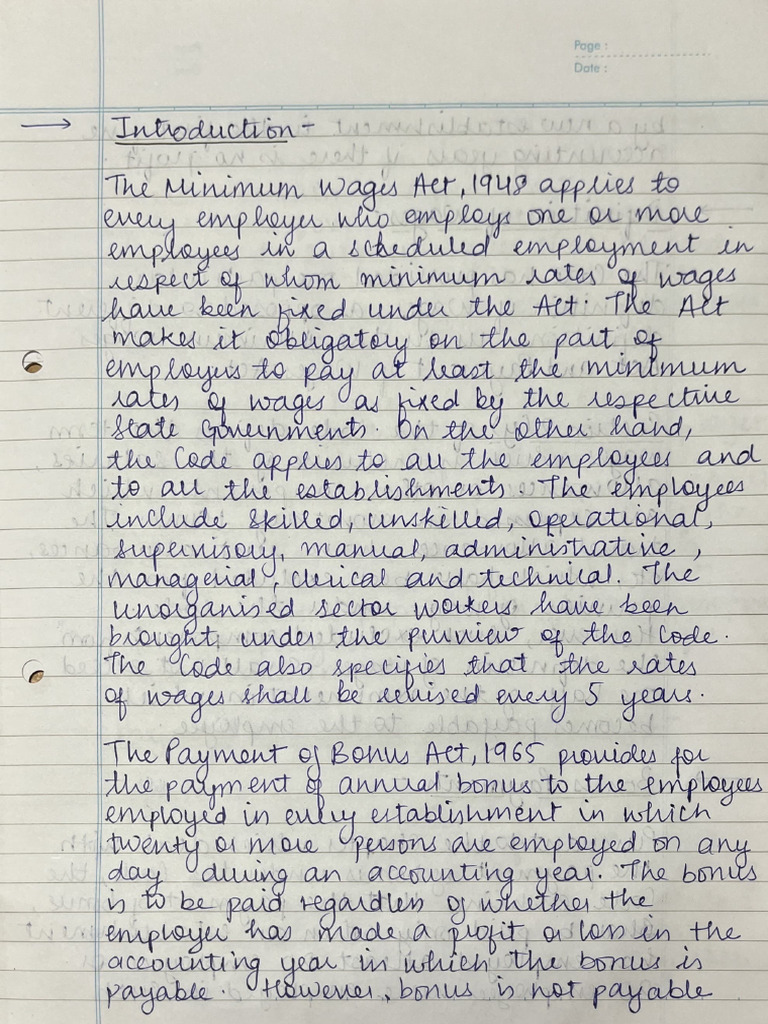 Page :
Date :
→ Introduction -
The Minimum Wages Act, 1948 applies to
every employer who employs one or more
employees in a scheduled employment in
respect of whom minimum rates of wages
have been fixed under the Act. The Act
makes it obligatory on the part of
employers to pay at least the minimum
rates of wages as fixed by the respective
State Governments. On the other hand,
the Code applies to all the employees and
to all the establishments. The employees
include skilled, unskilled, operational,
supervisory, manual, administrative,
managerial, clerical and technical. The
unorganised sector workers have been
brought under the purview of the Code.
The Code also specifies that the rates
of wages shall be revised every 5 years.
The Payment of Bonus Act, 1965 provides for
the payment of annual bonus to the employees
employed in every establishment in which
twenty or more persons are employed on any
day during an accounting year. The bonus
is to be paid regardless of whether the
employer has made a profit or loss in the
accounting year in which the bonus is
payable. However, bonus is not payable